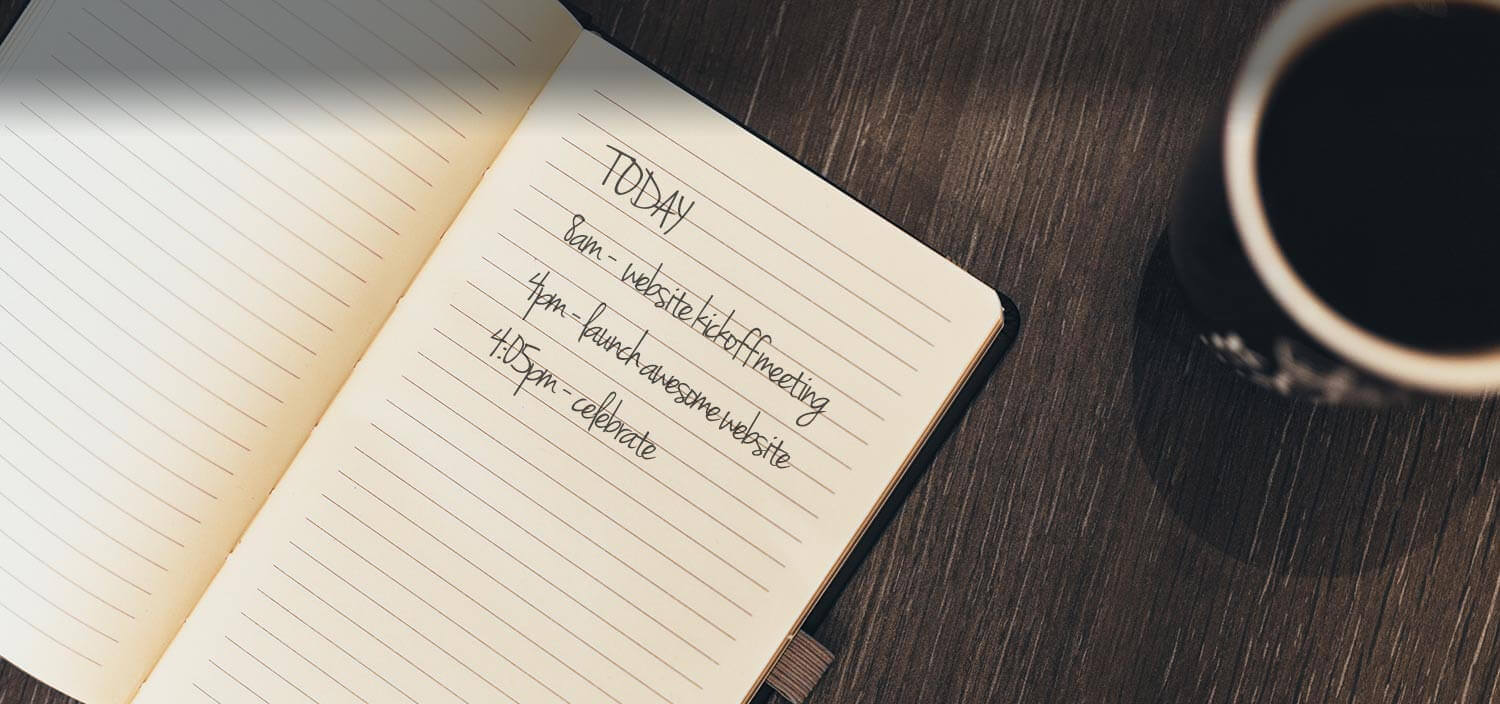 TODAY
8am - website kickoff meeting
4pm - launch awesome website
4:05pm - celebrate